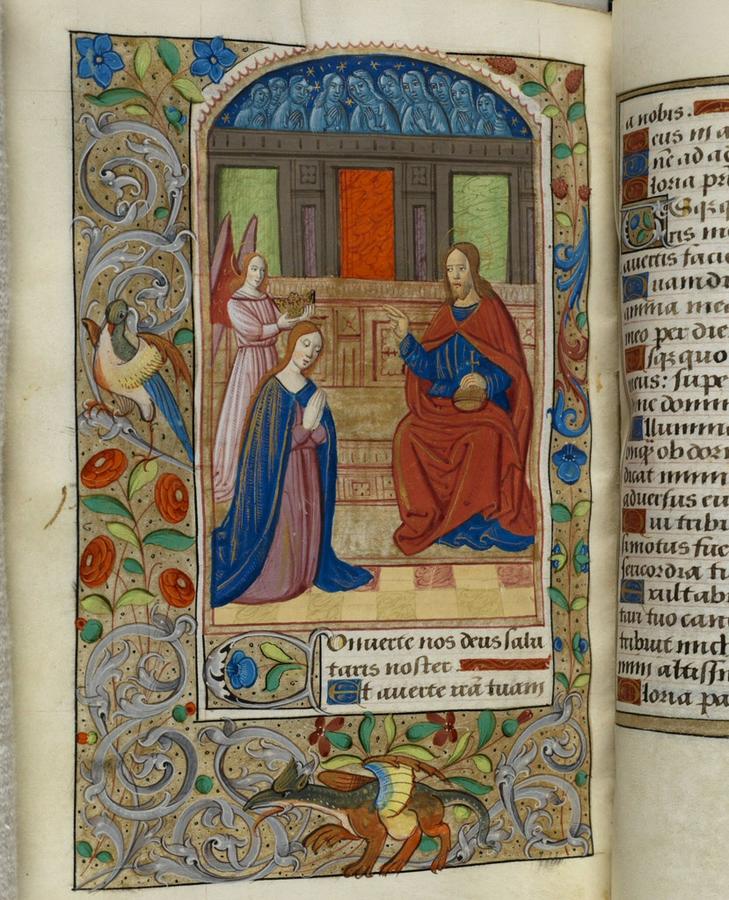 Conuerte nos deus salu
taris noster.
Et auerte irã tuam
a nobis.
Deus in a
ne ad ad
Gloria pri
Usqzq
ris me
auertis facie
Quamdi
anima mea
meo per die
Usqz quo
meus: supe
me domin
Illumin
onqz ob dor
dicat inimi
aduersus eu
Qui tribu
si motus fue
sericordia tu
Exultab
tari tuo can
tribuit mich
mini altissi
Gloria pa